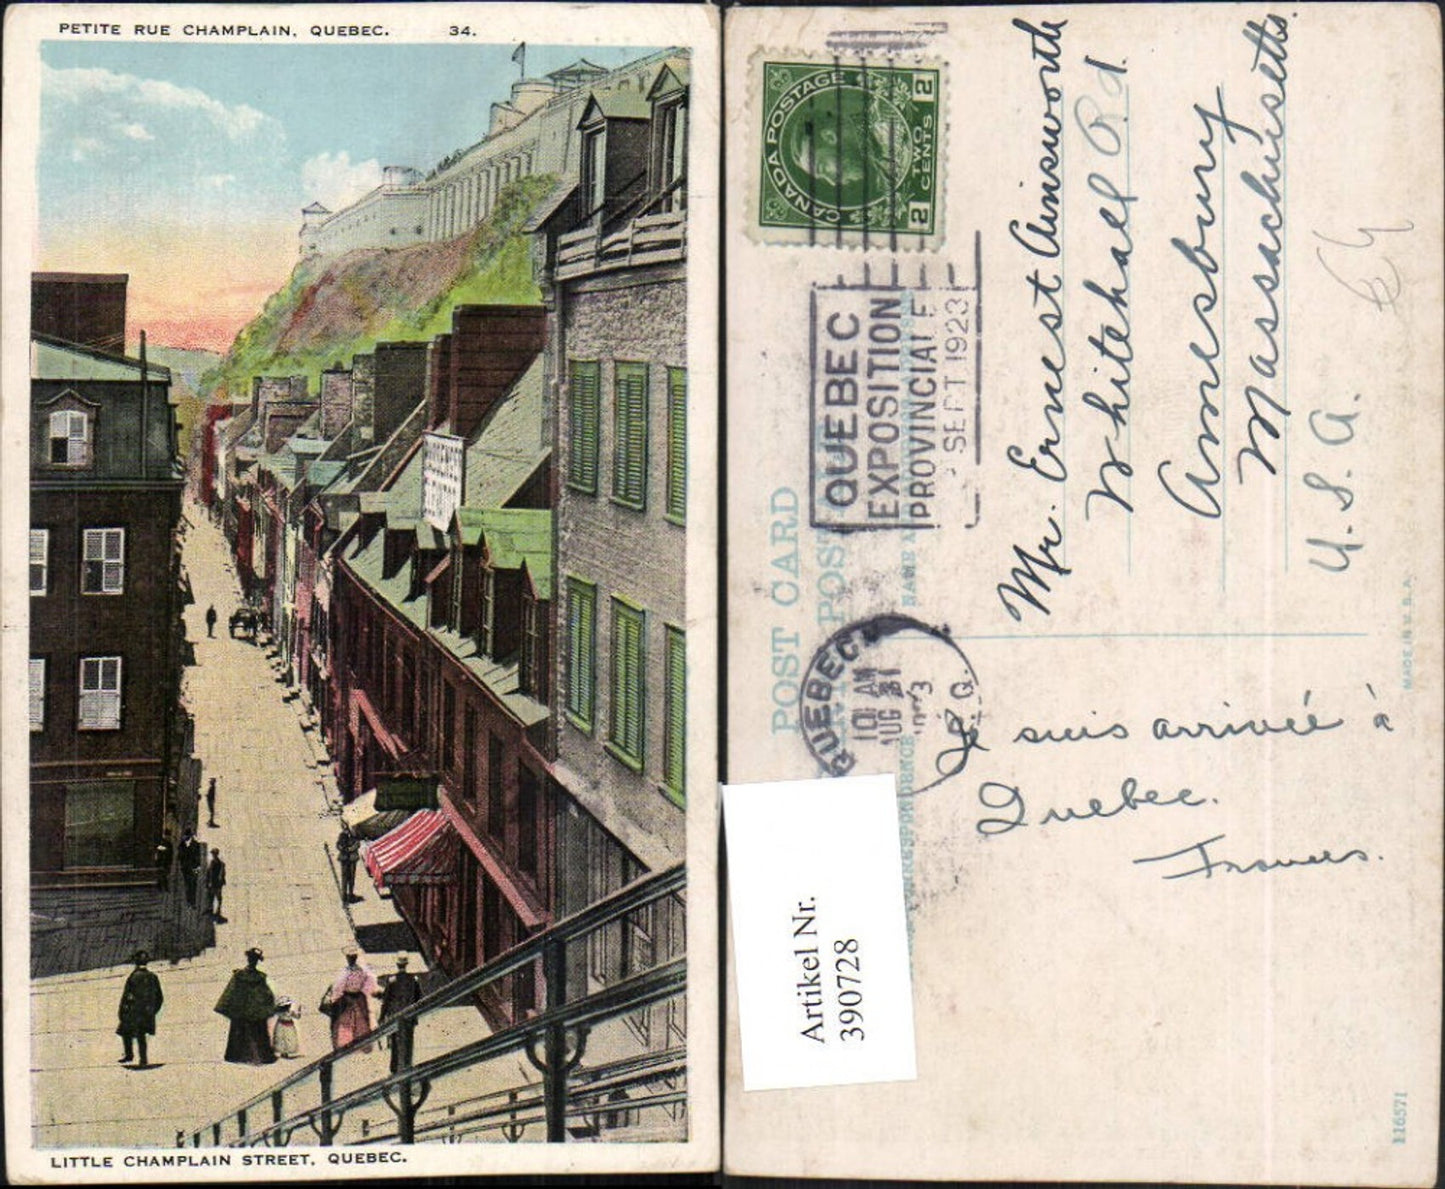 PETITE RUE CHAMPLAIN, QUEBEC. 34.
LITTLE CHAMPLAIN STREET, QUEBEC.
CANADA POSTAGE
CANADA POSTAGE
2 TWO CENTS 2
QUEBEC
EXPOSITION
PROVINCIALE
SEPT 1923
POST CARD
POST
CORRESPONDENCE
NAME
QUEBEC
10 AM
AUG 31
P.Q.
Mr. Ernest Ainsworth
Whitehall Rd.
Amesbury
Massachusetts.
U.S.A.
Je suis arrivée à
Quebec.
Frances.
Artikel Nr.
390728
MADE IN U.S.A.
116571